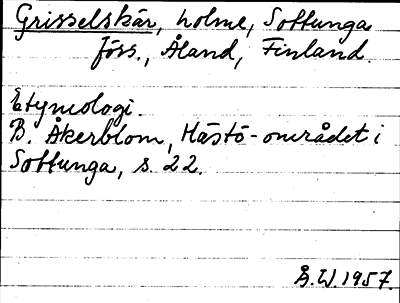 Grisselskär, holme, Sottunga
förs., Åland, Finland.
Etymologi.
B. Åkerblom, Hästö-området i
Sottunga, s. 22.
Å.W. 1957.